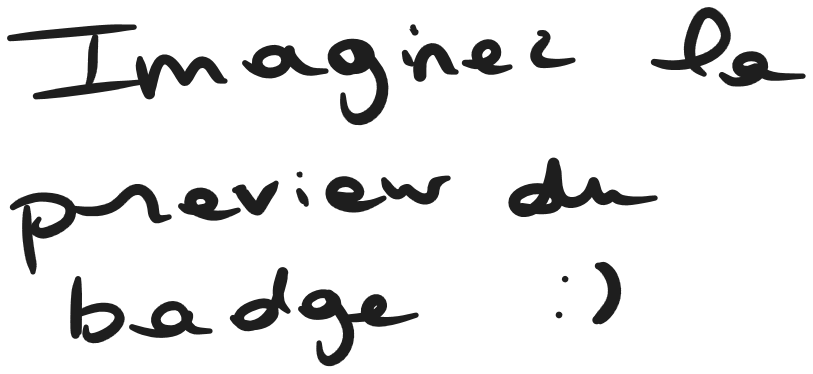 Imaginez la
preview du
badge :)